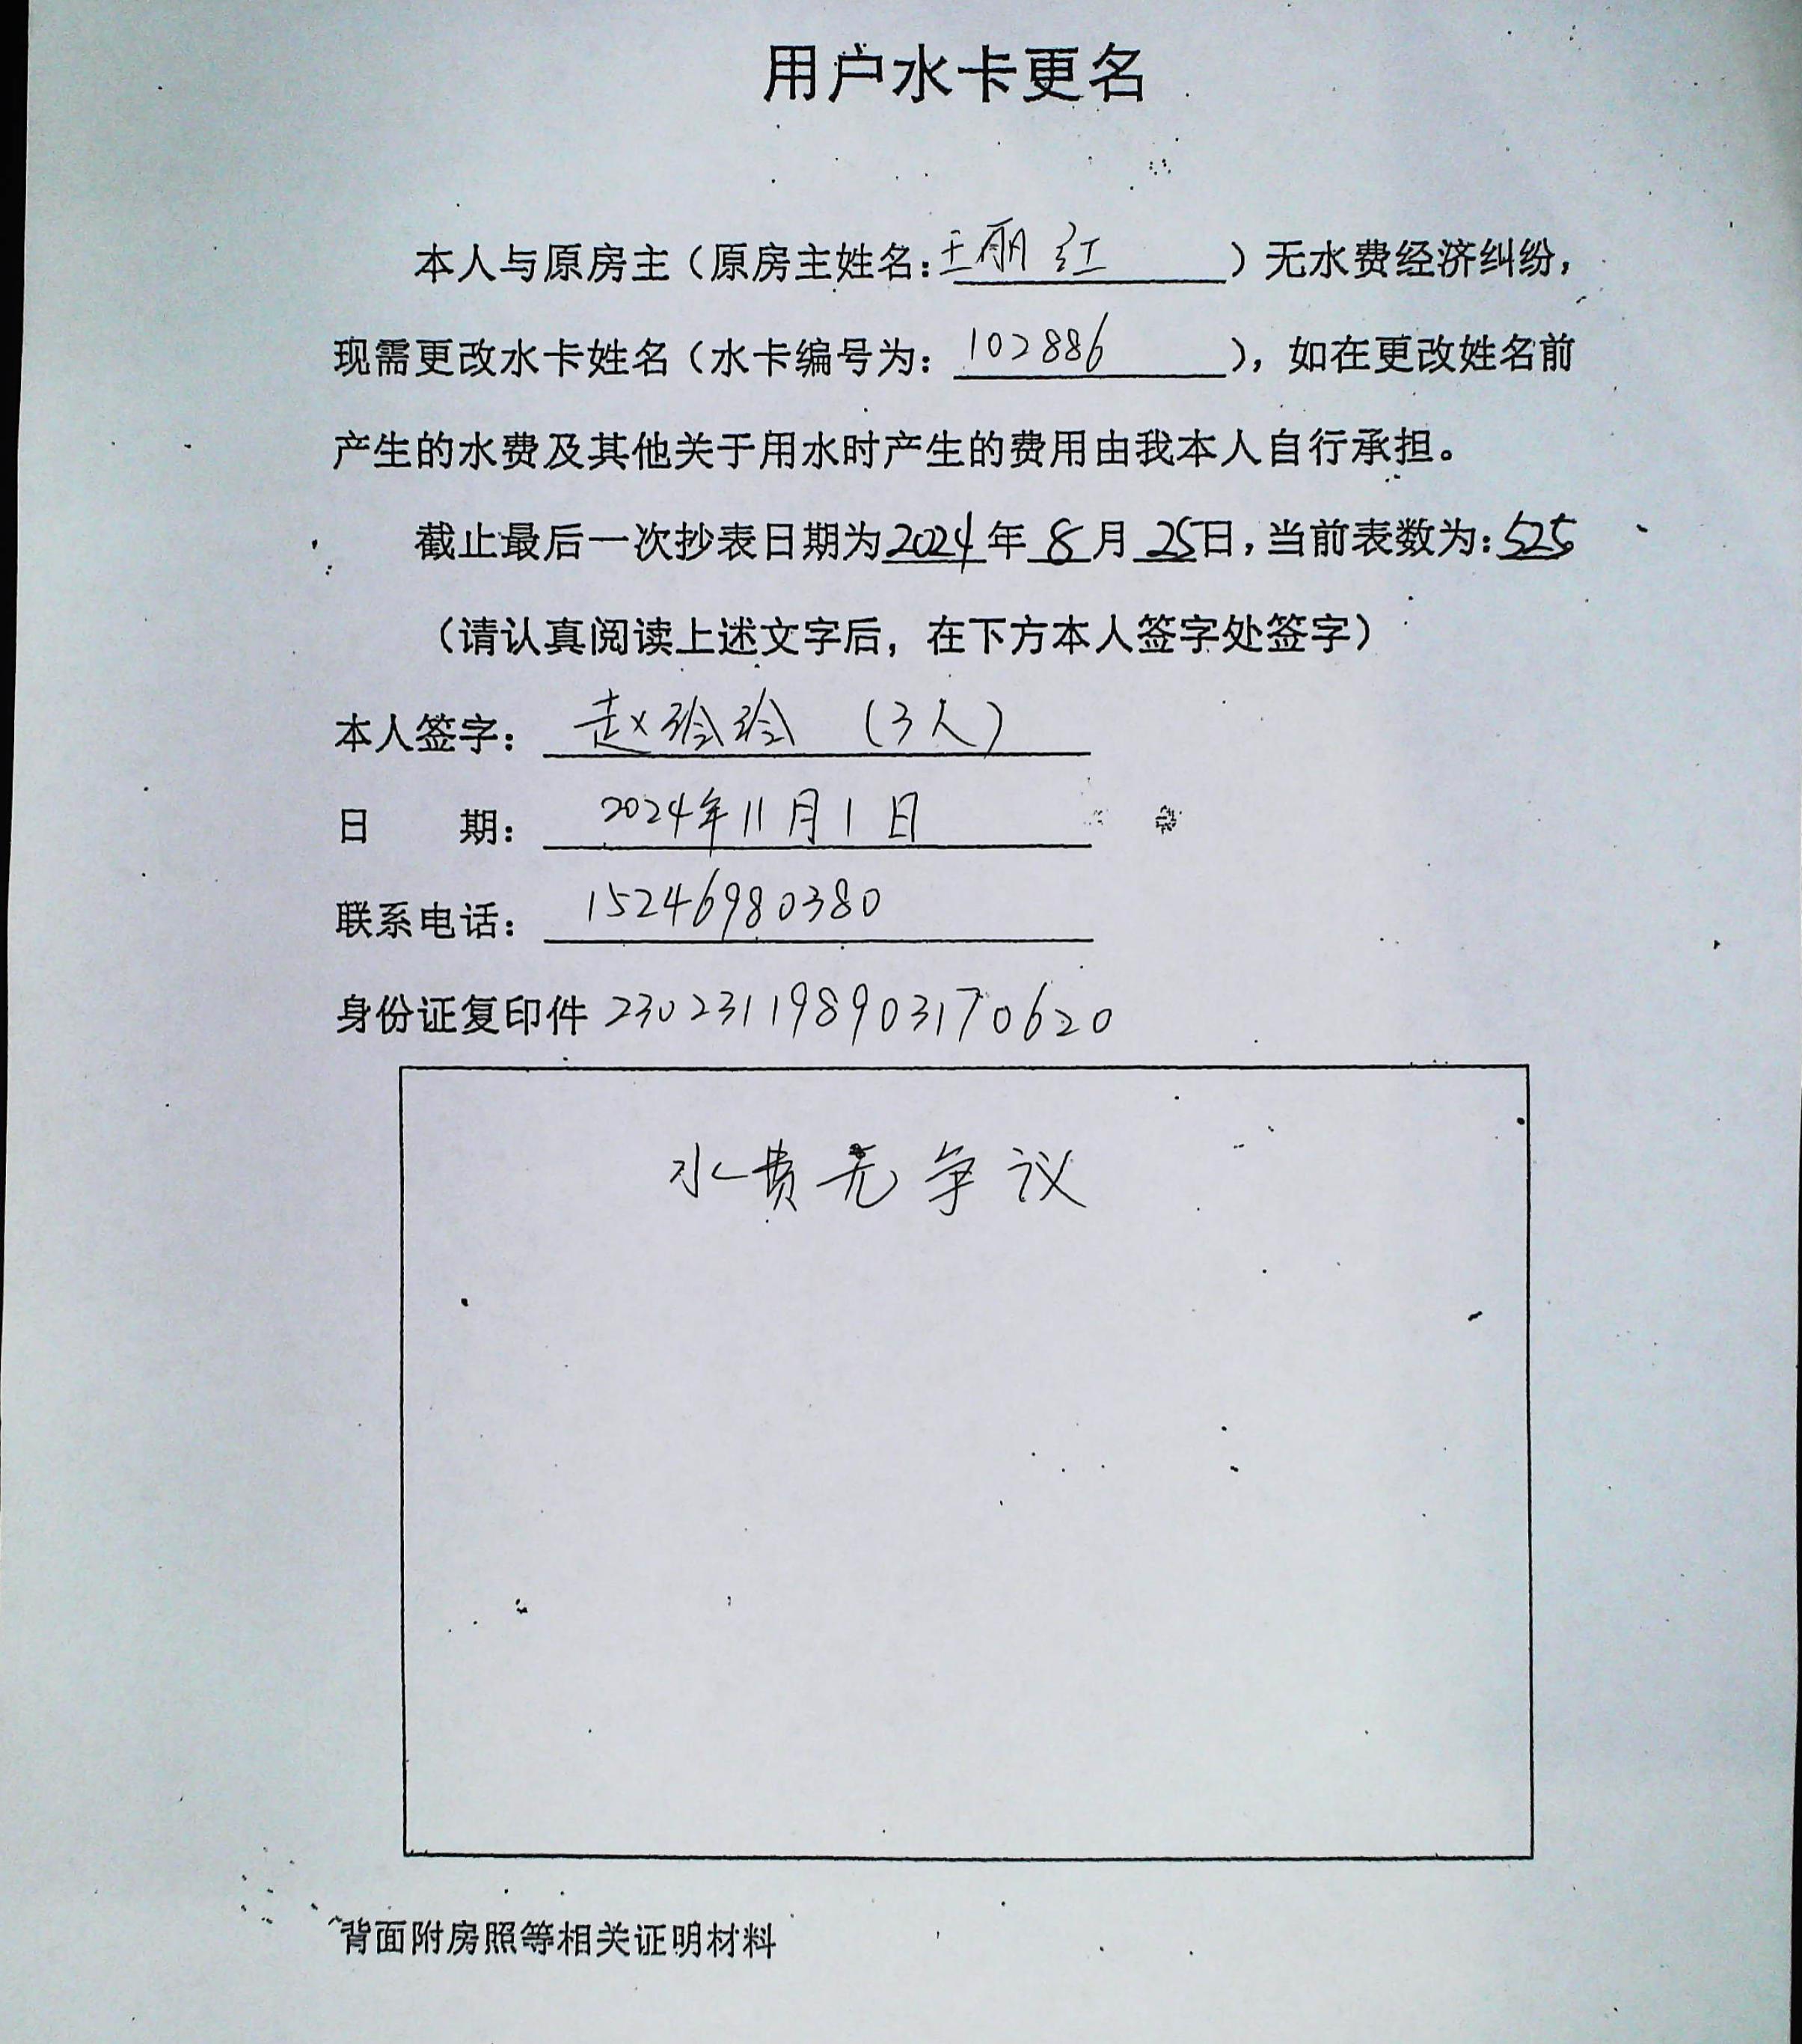 用户水卡更名
本人与原房主（原房主姓名：王丽红）无水费经济纠纷，
现需更改水卡姓名（水卡编号为：102886），如在更改姓名前
产生的水费及其他关于用水时产生的费用由我本人自行承担。
截止最后一次抄表日期为2024年8月25日，当前表数为：525
（请认真阅读上述文字后，在下方本人签字处签字）
本人签字：赵玲玲（3人）
日 期：2024年11月1日
联系电话：15246980380
身份证复印件 230231198903170620
水费无争议
背面附房照等相关证明材料